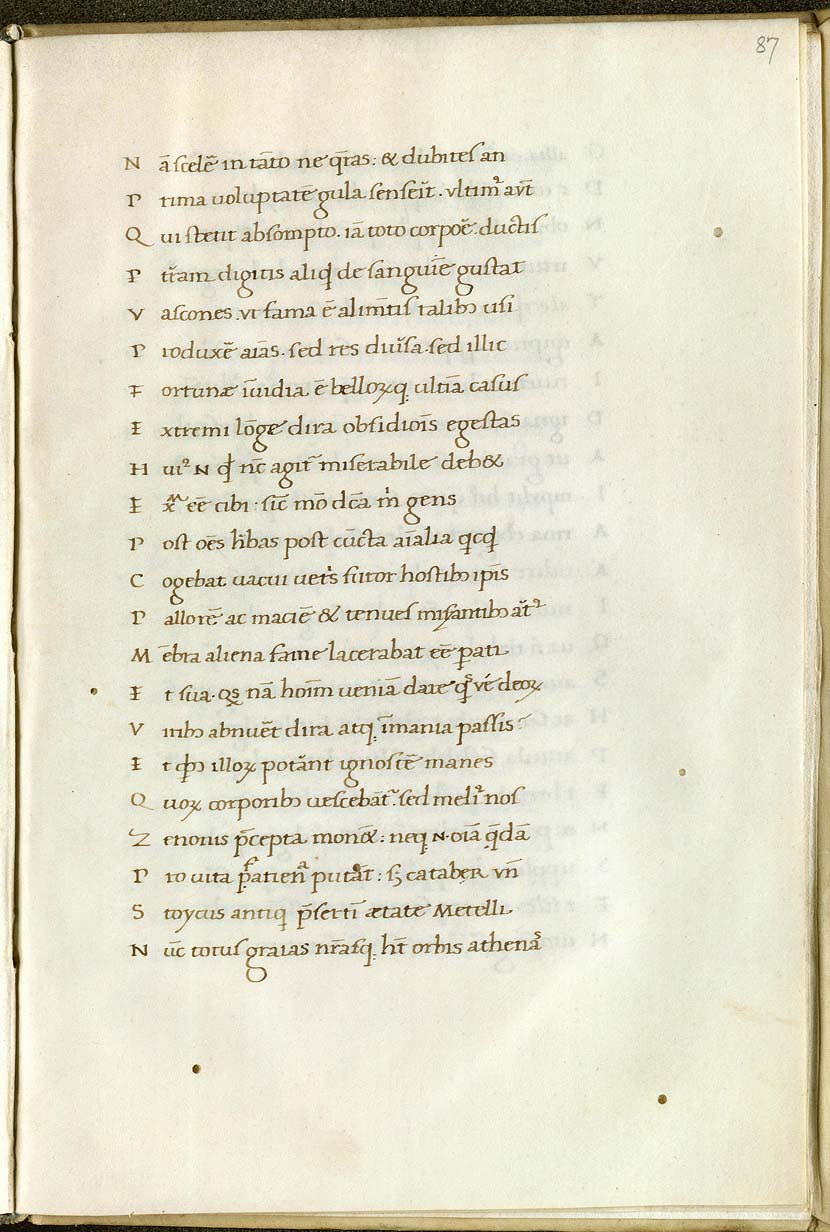 87
N ā scelē in tāto ne q̄ras : & dubites an
P rima uoluptatē gula senseit̄ . vltim᷒ aūt
Q ui stetit absompto . iā toto corpoē . ductis
P t̄ram digitis aliqd de sanguīe gustat
V ascones . vt fama ē alim̄tis talibꝫ usi
P roduxē aīas . sed res diūsa . sed illic
F ortunæ īuidia ē belloꝝq; ultīa casus
E xtremi lōgæ dira obsidiōis egestas
H ui᷒ N qđ nc̄ agit᷒ miserabile deb&
E x̄ eē cibi : sic̄ mō dc̄a m̄ gens
P ost oēs h̄bas post cūcta aīalia qcqd
C ogebat uacui uet̄s furor hostibꝫ ip̄is
P allorē ac maciē & tenues mis̄antibꝫ āt᷒
M ēbra aliena fame lacerabat eē pati
E t sua . qs nā hoīm ueniā dare qs ve deoꝝ
V iribꝫ abnuēt dira atq; īmania passis
E t qbꝫ illoꝝ potānt ignoscē manes
Q uoꝝ corporibꝫ uescebāt᷒ . sed meli᷒ nos
Z enonis p̄cepta monēt : neq; N . oīa q̄dā
P ro uita patien putāt : sꝫ cataber vn̄
S toycus antiq p̄sertī ætate Metelli
N ūc totus graias nr̄asq; h̄t orbis athenas